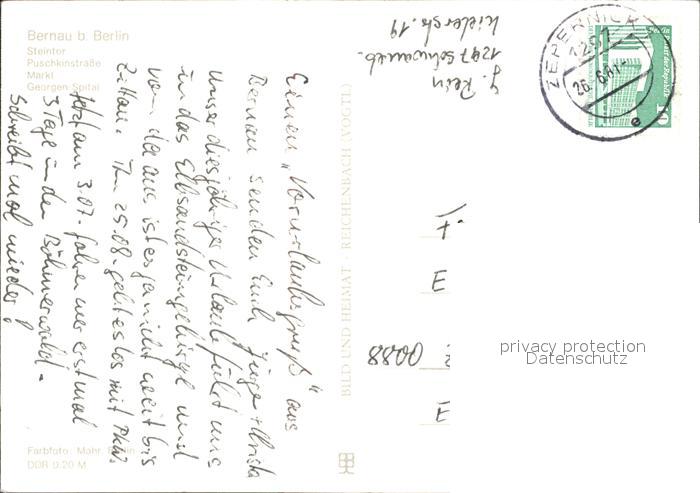 Bernau b. Berlin
Steintor
Puschkinstraße
Markt
Georgen Spital
Einen „Vorurlaubsgruß" aus
Bernau senden Euch Jürgen + Christa
Unser diesjähriger Urlaub führt uns
in das Elbsandsteingebirge und
von da aus ist es ja nicht weit bis
Zittau. Am 25.08. geht es los mit PKW.
Jetzt am 3.07. fahren wir erst mal
3 Tage in den Böhmerwald.
Schreibt mal wieder!
Farbfoto: Mahr, Berlin
DDR 0,20 M
BILD UND HEIMAT · REICHENBACH (VOGTL)
J. Rein
1297 Schwaneb.
Kielerstr. 19
ZEPERNICK
1297
26.6.81
e
10
F
E
8800
E
privacy protection
Datenschutz